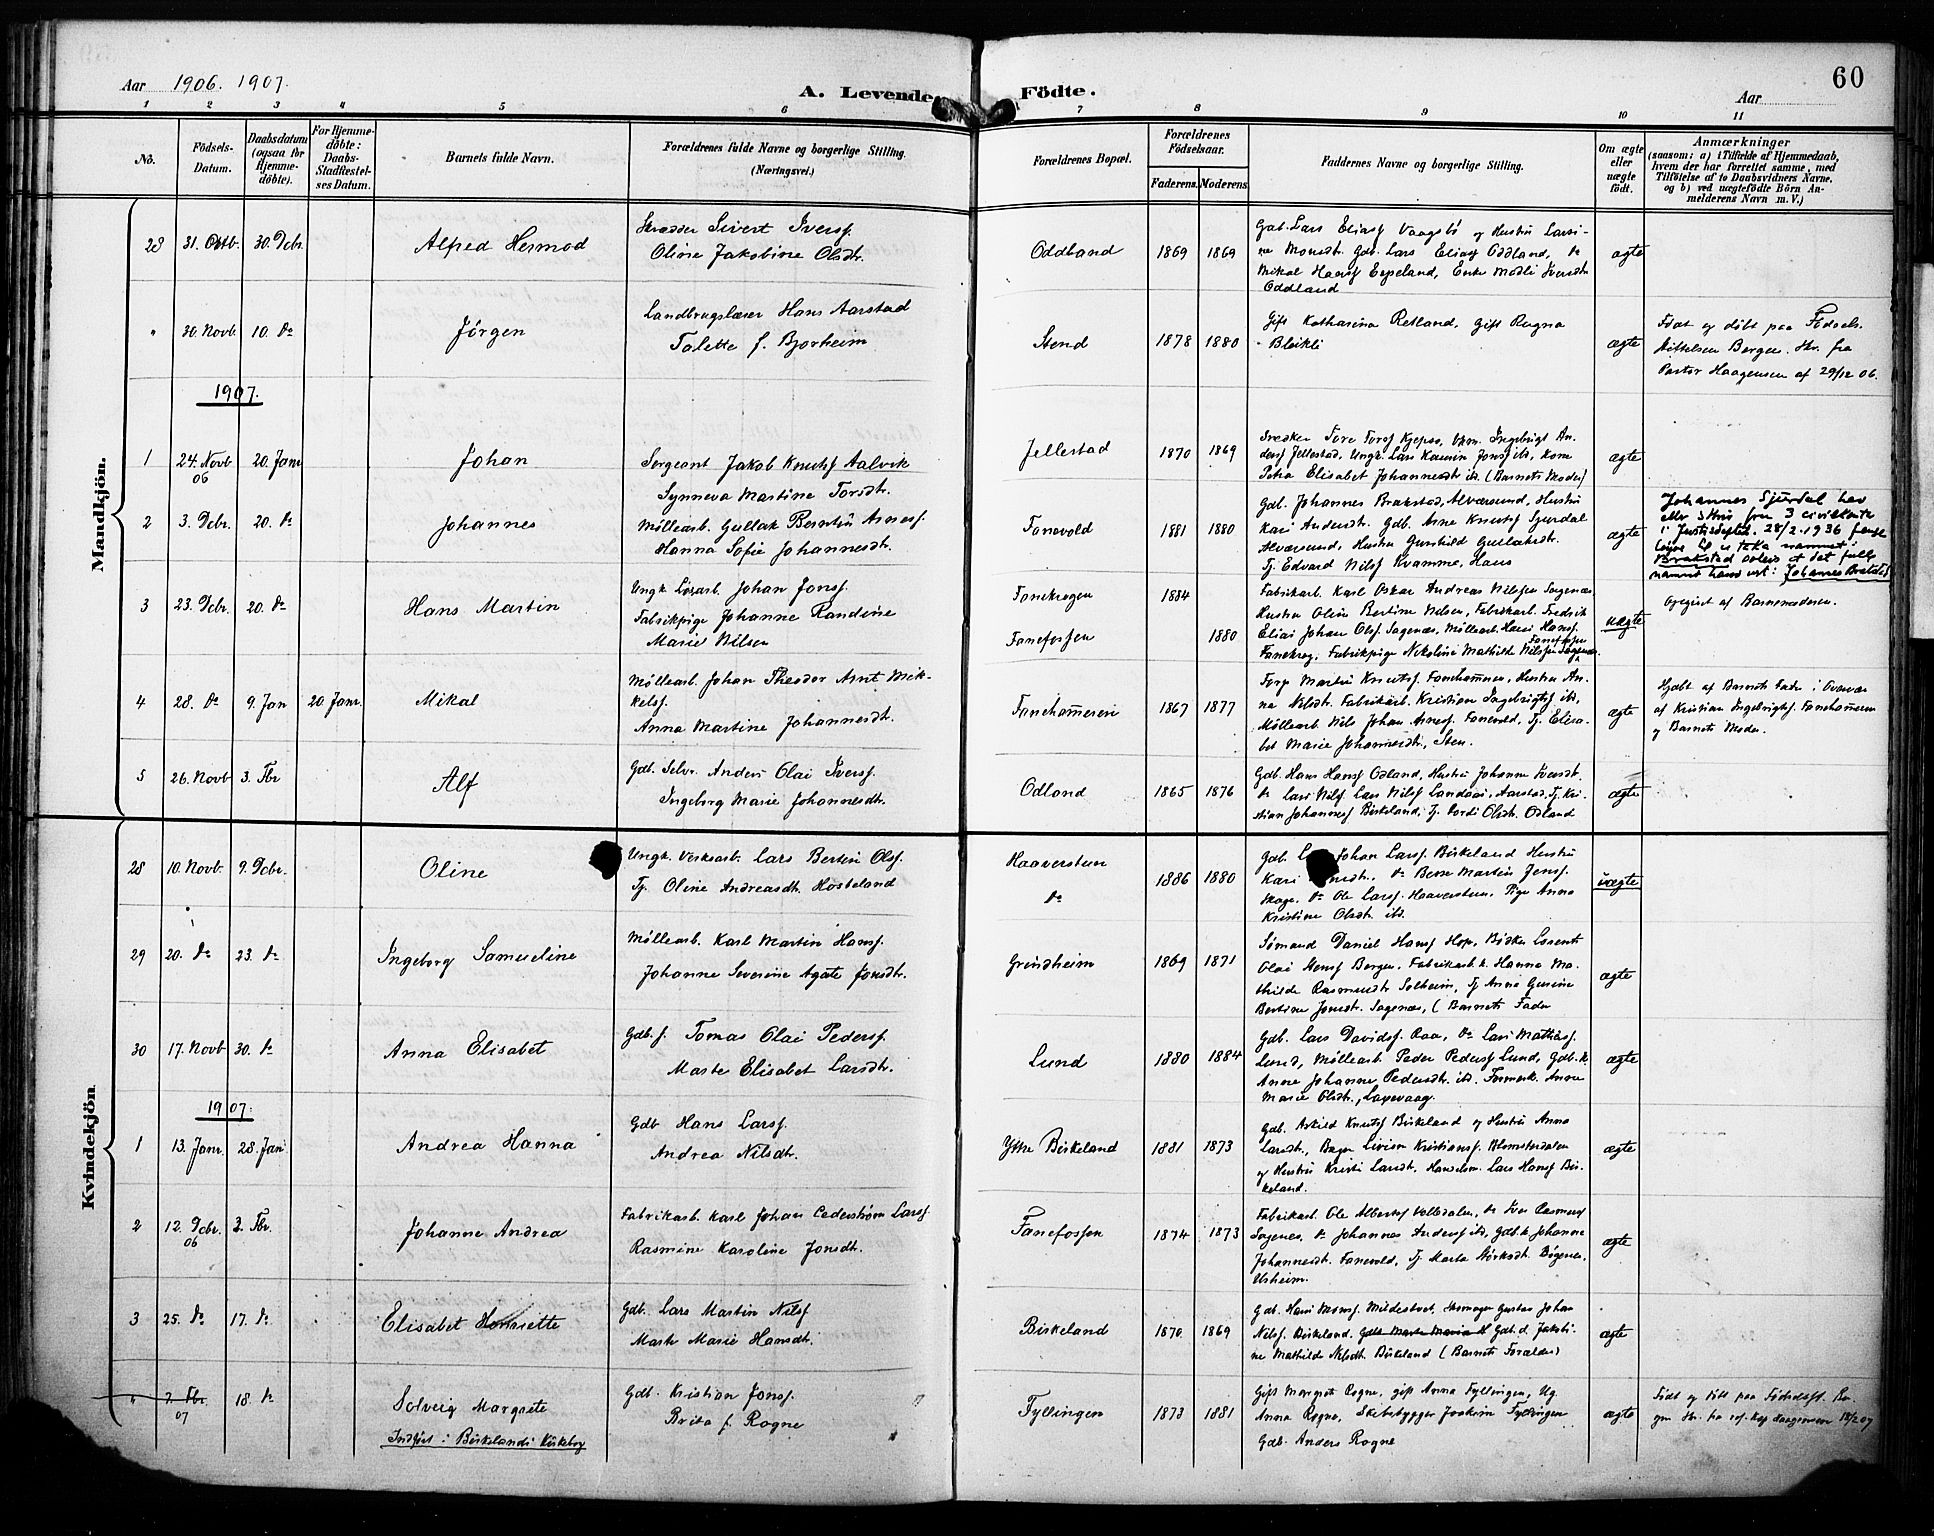 Aar 1906. 1907.
A. Levende Födte.
60
Aar
1 2 3 4 5 6 7 8 9 10 11
No.
Födsels-Datum.
Daabsdatum (ogsaa for Hjemme-döbte).
For Hjemme-döbte: Daabs-Stadfæstel-ses Datum.
Barnets fulde Navn.
Forældrenes fulde Navne og borgerlige Stilling.
(Næringsvei.)
Forældrenes Bopæl.
Forældrenes Födselsaar.
Faderens. Moderens.
Faddernes Navne og borgerlige Stilling.
Om ægte eller uægte födt.
Anmærkninger
(saasom: a) i Tilfælde af Hjemmedaab, hvem der har forrettet samme, med Tilföielse af to Daabsvidners Navne, og b) ved uægtefödte Börn An-melderens Navn m. V.)
Mandkjön.
28 31. Oktb. 30. Dcbr. Alfred Hermod
Skrædder Sivert Iverss.
Oline Jakobine Olsdtr.
Oddland 1869 1869
Gdb. Lars Eliass Vaagsbö og Hustru Larsi-
ne Monsdtr. Gdb. Lars Eliass Oddland, Do
Mikal Hanss Espeland, Enke Modli Iversdtr
Oddland
ægte
" 30. Novb. 10. Do Jörgen
Landbrugslærer Hans Aarstad
Talette f. Bjorheim
Stend 1878 1880
Gift Katharina Retland, Gift Ragna
Bleikli
ægte
Födt og döbt paa Födsels-
stiftelsen Bergen. Skr. fra
Pastor Haagensen af 29/12 06.
1907.
1 24. Novb 06 20. Janr Johan
Sergeant Jakob Knutss Aalvik
Synneva Martine Torsdtr.
Jellestad 1870 1869
Snedker Tore Torss
Ingebrigt An-
derss Jellestad, Ungk. Lars
Petra Elisabet Johannesdtr ibd. (Barnets Moder)
ægte
2 3. Dcbr. 20. Do Johannes
Möllearb. Gullak Berntin Arness.
Hanna Sofie Johannesdtr.
Fanevold 1881 1880
Gdb. Johannes Brakstad, Alværsund, Hustru
Kari Andersdtr. Gdb. Arne Knutss Sjurdal
Alværsund, Hustru Gunhild Gullaksdtr.
Tj. Edvard Nilss Kvamme, Haus
ægte
Johannes Sjurdal hev
etter skriv fra 3 civilkontor
i Justisdeptet. 28/2.1936 fenge
löyve til å taka namnet:
Brakstad soleis at det fulle
namnet hans vert: Johannes Brakstad
3 23. Dcbr. 20. Do Hans Martin
Ungk. Lösarb. Johan Jonss.
Fabrikpige Johanne Randine
Marie Nilsen
Fanekrogen 1884
Fanefossen 1880
Fabrikarb. Karl Oskar Andreas Nilssen Sagenæs
Hustru Oline Bertine Nilsen, Fabrikarb. Fredrik
Elias Johan Olss. Sagenæs, Möllearb. Hans Hanss.
Fanekrog, Fabrikpige Nikoline Mathilde Nilssen Fanefossen
uægte
Opgivet af Barnemoderen.
4 28. Do 9. Jan 20. Janr. Mikal
Möllearb. Johan Theodor Arnt Mik-
kelss.
Anna Martine Johannesdtr.
Fanehammeren 1867 1877
Martin Knutss. Fanehammeren, Hustru An-
na Nilsdtr. Fabrikarb. Kristian Ingebrigtss ibd.
Möllearb. Nils Johan Arness. Fanevold, Tj. Elisa-
bet Marie Johannesdtr., Sten.
ægte
Hjdbt. af Barnets Fader i Overvær
af Kristian Ingebrigtss. Fanehammeren
og Barnets Moder.
5 26. Novb 3. Fbr Alf
Gdb. Selvr. Anders Olai Iverss.
Ingeborg Marie Johannesdtr.
Odland 1865 1876
Gdb. Hans Hanss Odland, Hustru Johanne Iversdtr.
Do Lars Nilss Lars Nilss Landaas, Aarstad, Tj. Kri-
stian Johanness Birkeland, Tj. Dordi Olsdtr. Odland
ægte
Kvindekjön
28 10. Novb. 9. Dcbr. Oline
Ungk. Verksarb. Lars Bertin Olss.
Tj. Oline Andreasdtr. Hosteland
Haaversteen
Do
1886 1880
Gdb. Johan Larss. Birkeland Hustru
Kari Do Berne Martin Jenss.
Skage. Do Ole Larss. Haaversteen, Pige Anna
Kristine Olsdtr. ibd.
uægte
29 20. Do 23. Do Ingeborg Samueline
Möllearb. Karl Martin Hanss.
Johanne Severine Agate Jonsdtr.
Grindheim 1869 1871
Sömand Daniel Hanss Hop, Bödker Lorents
Olai Bergen, Fabrikarb.k. Hanna Ma-
thilde Rasmusdtr Solheim, Tj. Anna Gurine
Bertine Jonsdtr. Sagenæs, (Barnets Fader
ægte
30 17. Novb 30. Do Anna Elisabet
Gdb.s. Tomas Olai Pederss.
Marte Elisabet Larsdtr.
Lund 1880 1884
Gdb. Lars Davidss. Raa, Do Lars Mathiass.
Lund, Möllearb. Peder Pederss Lund, Gdb.k.
Anna Johanne Pedersdtr. ibd. Anna
Marie Olsdtr.,
ægte
1907.
1 13. Janr. 28. Jan Andrea Hanna
Gdb Hans Larss.
Andrea Nilsdtr.
Ytre Birkeland 1881 1873
Gdb. Askild Knutss Birkeland og Hustru Anna
Larsdtr., Bager Kristianss. Blomsterdalen
og Hustru Kristi Larsdtr., Lars Hanss Bir-
keland.
ægte
2 12. Dcbr. 06 3. Fbr. Johanne Andrea
Fabrikarb. Karl Johan Cederström Larss
Rasmine Karoline Jonsdtr.
Fanefossen 1874 1873
Fabrikarb. Ole Albertss Do Iver Rasmuss
Sagenes. Do Johannes Anderss ibd, Gdb.k. Johanne
Johannesdtr. Fanevold, Tj. Marta Bögenes,
Ulsheim.
ægte
3 25. Do 17. Do Elisabet Henriette
Gdb. Lars Martin Nilss
Marte Marie Hansdtr.
Birkeland 1870 1869
Gdb. Hans Monss. Mildestvet, Skomager Gustav Johan
Nilss. Birkeland. Gdbk Marte Maria H Gdb.d. Jakobi-
ne Mathilde Nilsdtr. Birkeland (Barnets Forældre)
ægte
" 7. Fbr. 07 18. Do Solveig Margrete
Indfört i Birkelands Kirkebog
Gdb. Kristian Jonss.
Brita f. Rogne
Fyllingen 1873 1881
Gift Margrete Rogne, gift Anna Fyllingen, Ug.
Anna Rogne, Skibsbygger Joakim Fyllingen
Gdb. Anders Rogne
ægte
Födt og döbt paa Födselsst. Ber-
gen Skr. fra res. Kap Haagensen 18/2 07